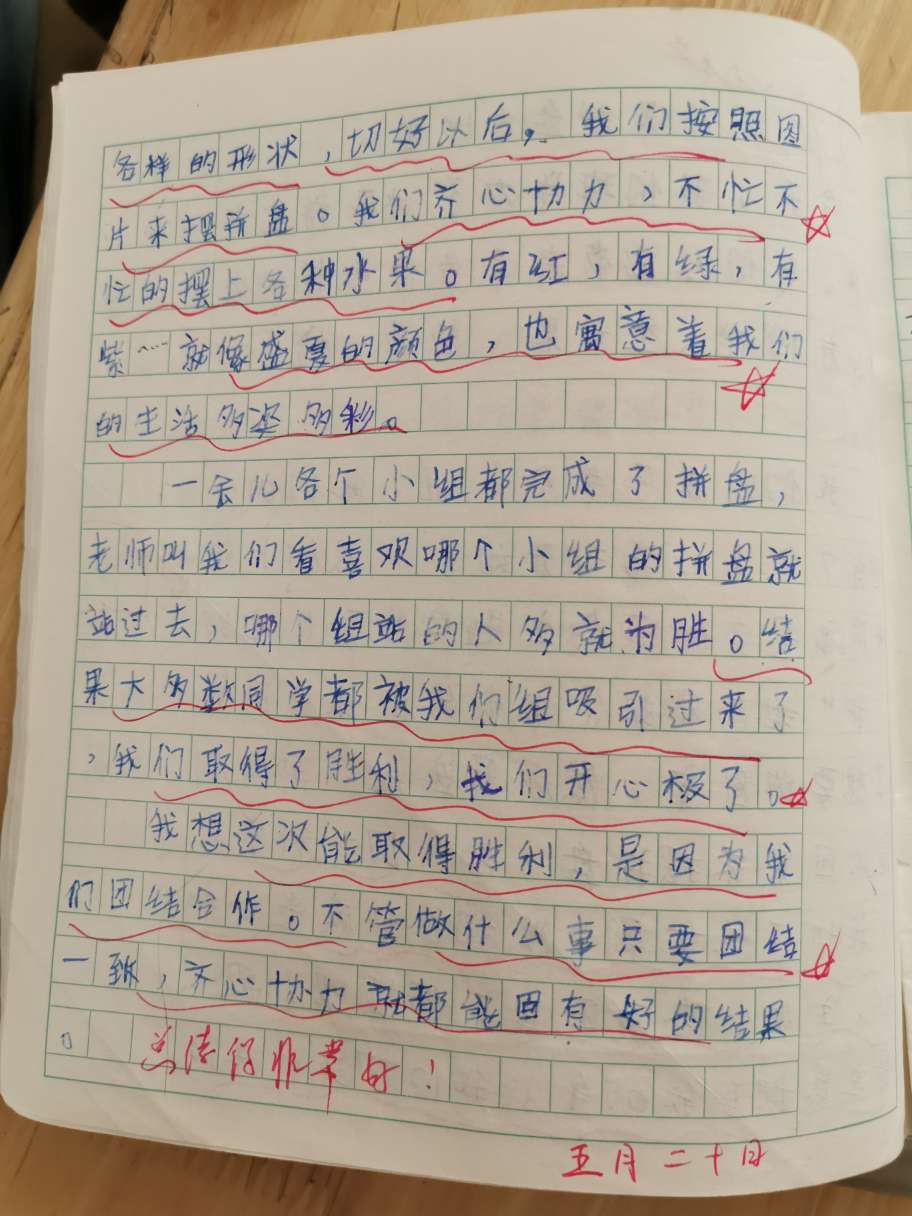 各样的形状，切好以后，我们按照图
片来摆拼盘。我们齐心协力，不忙不
忙的摆上各种水果。有红，有绿，有
紫……就像盛夏的颜色，也寓意着我们
的生活多姿多彩。
一会儿各个小组都完成了拼盘，
老师叫我们看喜欢哪个小组的拼盘就
站过去，哪个组站的人多就为胜。结
果大多数同学都被我们组吸引过来了
，我们取得了胜利，我们开心极了。
我想这次能取得胜利，是因为我
们团结合作。不管做什么事只要团结
一致，齐心协力就都能固有好的结果
。
总结得非常好！
五月二十日